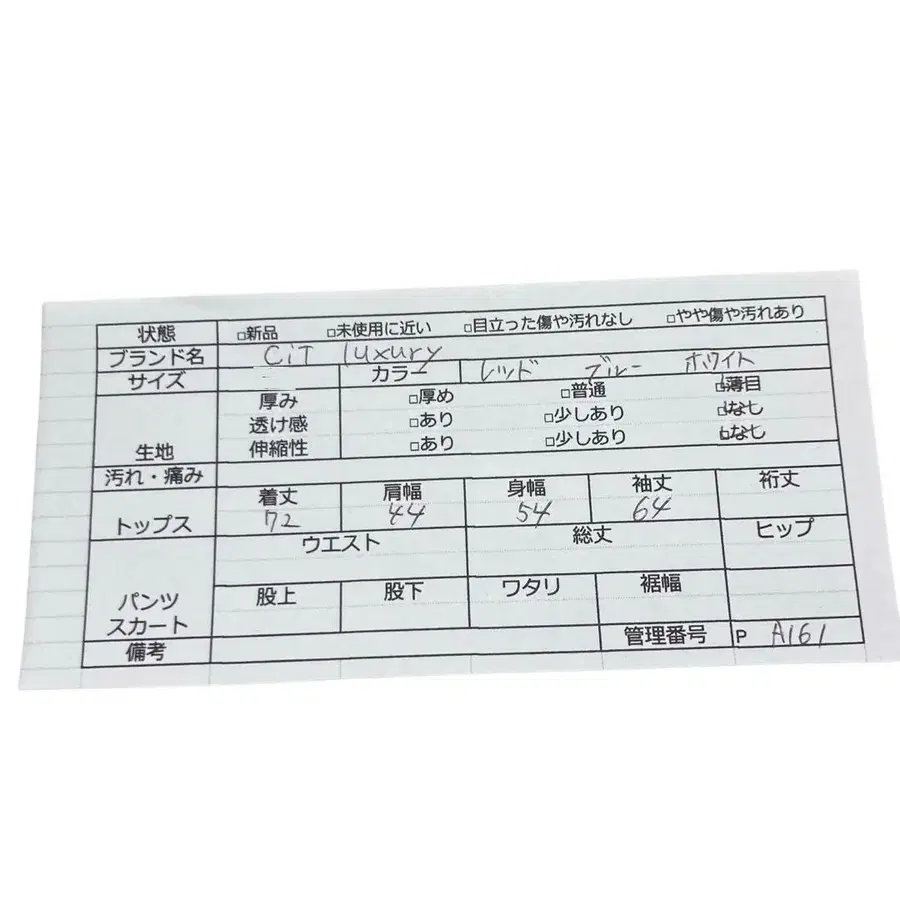 状態 □新品 □未使用に近い □目立った傷や汚れなし □やや傷や汚れあり
ブランド名 CiT luxury
サイズ カラー レッド ブルー ホワイト
厚み □厚め □普通 □薄目
透け感 □あり □少しあり □なし
生地 伸縮性 □あり □少しあり □なし
汚れ・痛み
着丈 肩幅 身幅 袖丈 裄丈
トップス 72 44 54 64
ウエスト 総丈 ヒップ
パンツ 股上 股下 ワタリ 裾幅
スカート
備考 管理番号 P A161